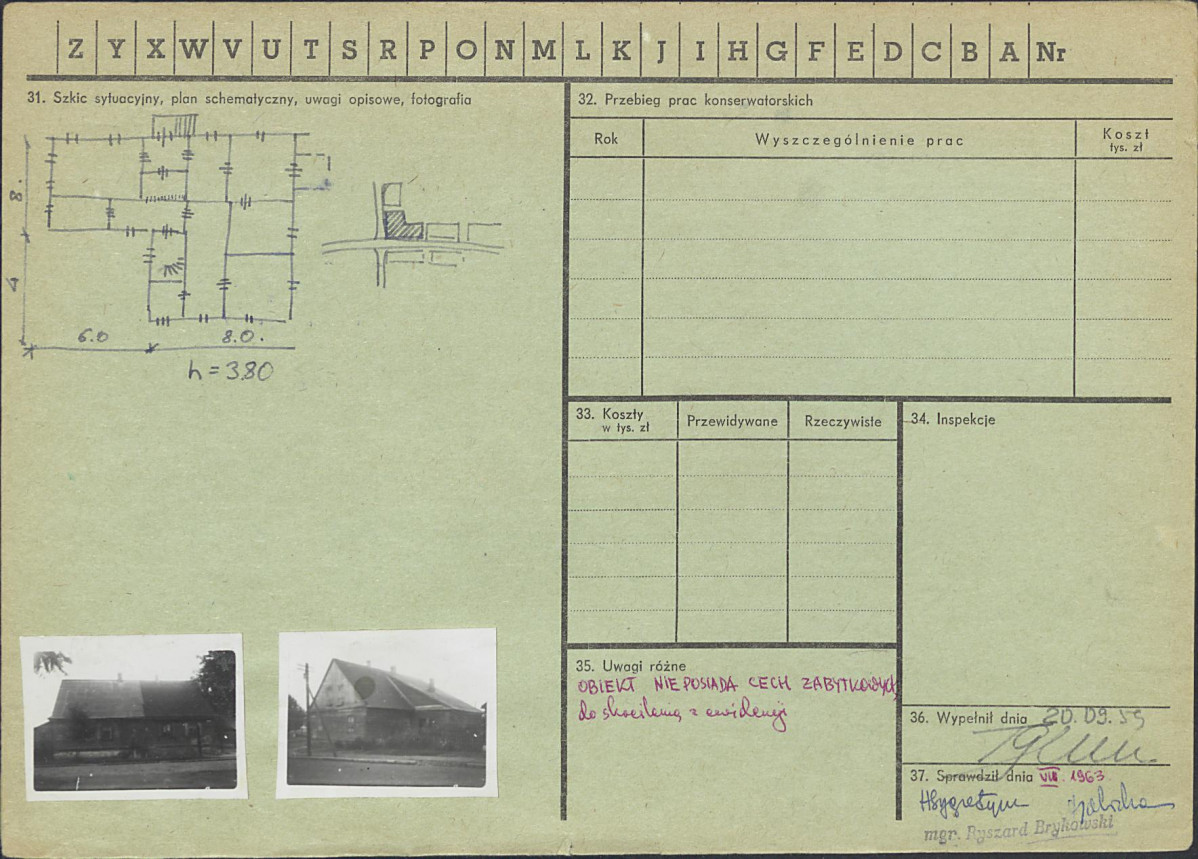 Z Y X W V U T S R P O N M L K J I H G F E D C B A Nr
31. Szkic sytuacyjny, plan schematyczny, uwagi opisowe, fotografia
8.
4
6.0
8.0.
h = 3.80
32. Przebieg prac konserwatorskich
Rok
Wyszczególnienie prac
Koszt
tys. zł
33. Koszty
w tys. zł
Przewidywane
Rzeczywiste
34. Inspekcje
35. Uwagi różne
OBIEKT NIE POSIADA CECH ZABYTKOWYCH
do skreślenia z ewidencji
36. Wypełnił dnia 20.09.59
37. Sprawdził dnia VIII. 1963
mgr. Ryszard Brykowski